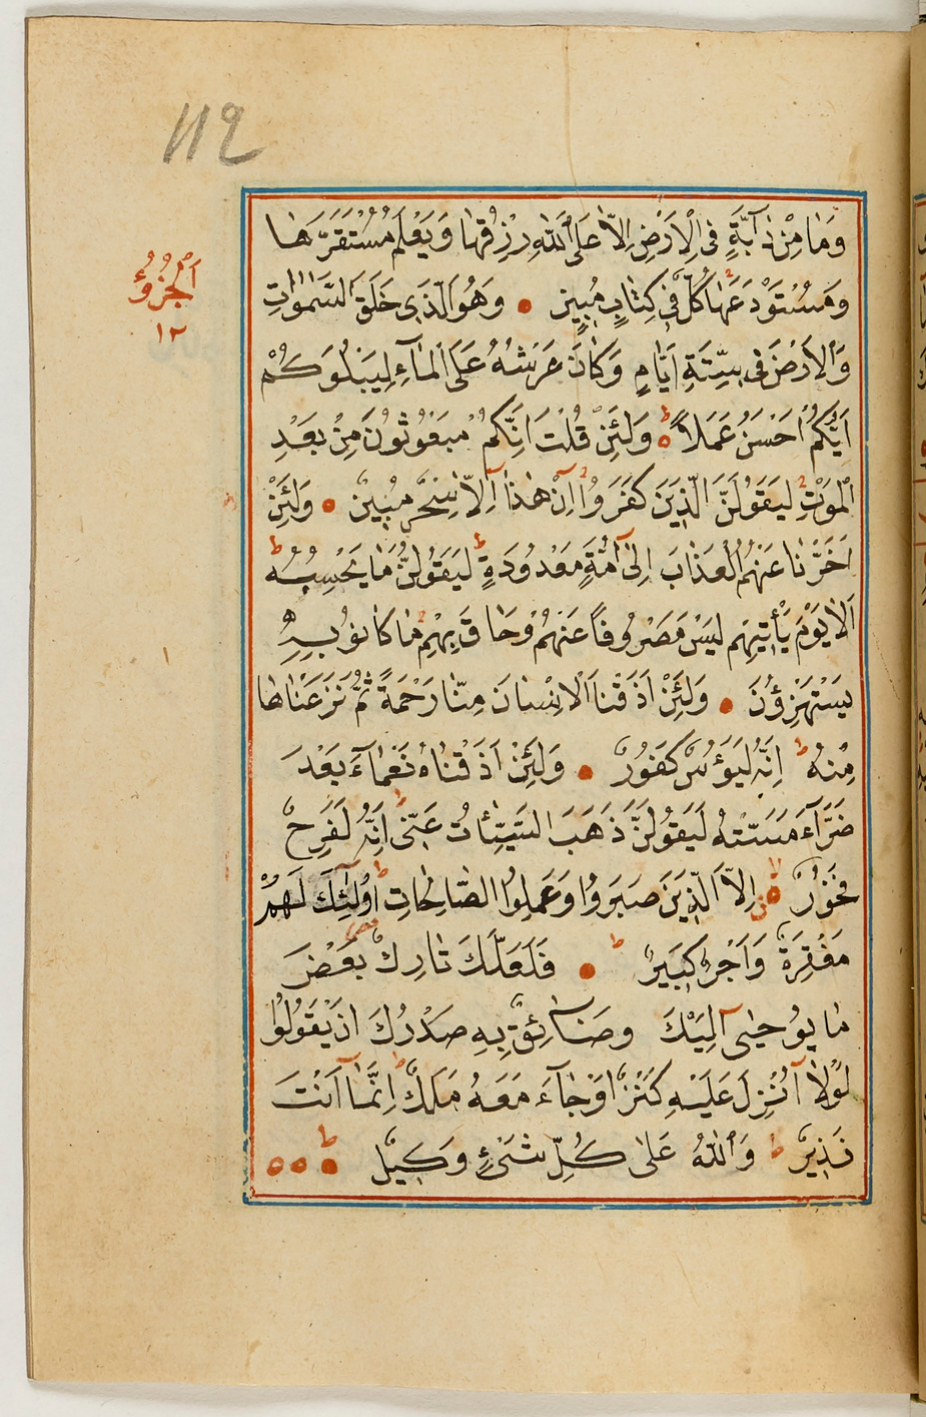 112
وَمَا مِنْ دَآبَّةٍ فِى الْاَرْضِ اِلَّا عَلَى اللّٰهِ رِزْقُهَا وَيَعْلَمُ مُسْتَقَرَّهَا
اَلْجُزْؤُ
وَمُسْتَوْدَعَهَا كُلٌّ فِى كِتَابٍ مُبِينٍ وَهُوَ الَّذِى خَلَقَ السَّمٰوَاتِ
١٢
وَالْاَرْضَ فِى سِتَّةِ اَيَّامٍ وَكَانَ عَرْشُهُ عَلَى الْمَآءِ لِيَبْلُوَكُمْ
اَيُّكُمْ اَحْسَنُ عَمَلًا ط وَلَئِنْ قُلْتَ اِنَّكُمْ مَبْعُوثُونَ مِنْ بَعْدِ
الْمَوْتِ لَيَقُولَنَّ الَّذِينَ كَفَرُوا اِنْ هٰذَا اِلَّا سِحْرٌ مُبِينٌ وَلَئِنْ
اَخَّرْنَا عَنْهُمُ الْعَذَابَ اِلٰى اُمَّةٍ مَعْدُودَةٍ ط لَيَقُولُنَّ مَا يَحْبِسُهُ ط
اَلَا يَوْمَ يَأْتِيهِمْ لَيْسَ مَصْرُوفًا عَنْهُمْ وَحَاقَ بِهِمْ مَا كَانُوا بِهِ
يَسْتَهْزِؤُنَ وَلَئِنْ اَذَقْنَا الْاِنْسَانَ مِنَّا رَحْمَةً ثُمَّ نَزَعْنَاهَا
مِنْهُ ط اِنَّهُ لَيَؤُسٌ كَفُورٌ وَلَئِنْ اَذَقْنَاهُ نَعْمَآءَ بَعْدَ
ضَرَّآءَ مَسَّتْهُ لَيَقُولَنَّ ذَهَبَ السَّيِّئَاتُ عَنِّى ط اِنَّهُ لَفَرِحٌ
فَخُورٌ اِلَّا الَّذِينَ صَبَرُوا وَعَمِلُوا الصَّالِحَاتِ ط اُولٰٓئِكَ لَهُمْ
مَغْفِرَةٌ وَاَجْرٌ كَبِيرٌ ط فَلَعَلَّكَ تَارِكٌ بَعْضَ
مَا يُوحٰى اِلَيْكَ وَضَآئِقٌ بِهِ صَدْرُكَ اَنْ يَقُولُوا
لَوْلَا اُنْزِلَ عَلَيْهِ كَنْزٌ اَوْ جَآءَ مَعَهُ مَلَكٌ ط اِنَّمَا اَنْتَ
نَذِيرٌ ط وَاللّٰهُ عَلٰى كُلِّ شَىْءٍ وَكِيلٌ ط